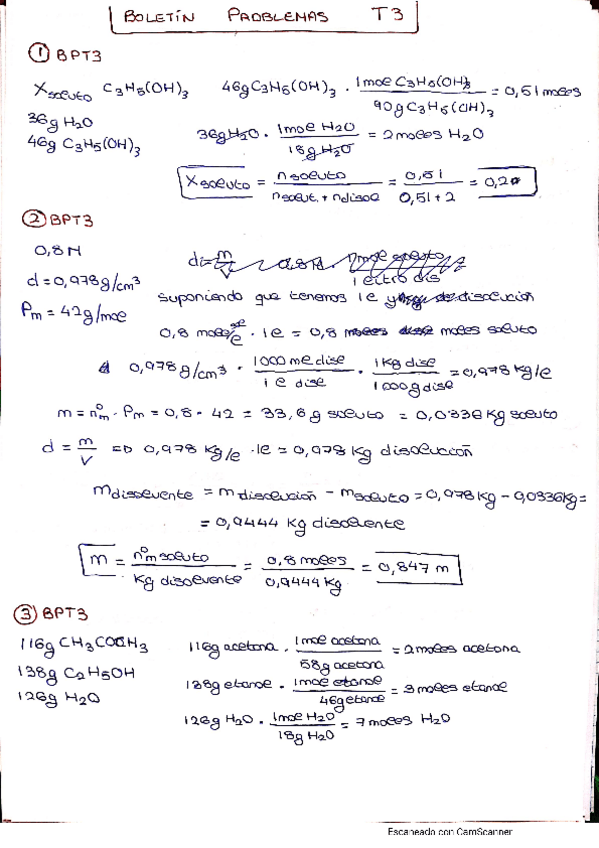 BOLETÍN PROBLEMAS T3
① BPT3
Xsoluto C3H5(OH)3 46g C3H5(OH)3 · 1mol C3H5(OH)3 / 90g C3H5(OH)3 = 0,51 moles
36g H2O 36g H2O · 1mol H2O / 18g H2O = 2 moles H2O
46g C3H5(OH)3
Xsoluto = nsoluto / nsolut. + ndisol = 0,51 / 0,51 + 2 = 0,20
② BPT3
0,8M
d = 0,978 g/cm³
Pm = 42 g/mol
suponiendo que tenemos 1l de disolución
0,8 moles/l · 1l = 0,8 moles soluto
0,978 g/cm³ · 1000 ml disol / 1 l disol · 1kg disol / 1000g disol = 0,978 kg/l
m = nºm · Pm = 0,8 · 42 = 33,6g soluto = 0,0336 Kg soluto
d = m/V => 0,978 kg/l · 1l = 0,978 Kg disolución
mdisolvente = mdisolución - msoluto = 0,978 kg - 0,0336kg =
= 0,9444 kg disolvente
m = nºm soluto / kg disolvente = 0,8 moles / 0,9444 kg = 0,847 m
③ BPT3
116g CH3COCH3 116g acetona · 1mol acetona / 58g acetona = 2 moles acetona
138g C2H5OH 138g etanol · 1mol etanol / 46g etanol = 3 moles etanol
126g H2O 126g H2O · 1mol H2O / 18g H2O = 7 moles H2O
Escaneado con CamScanner